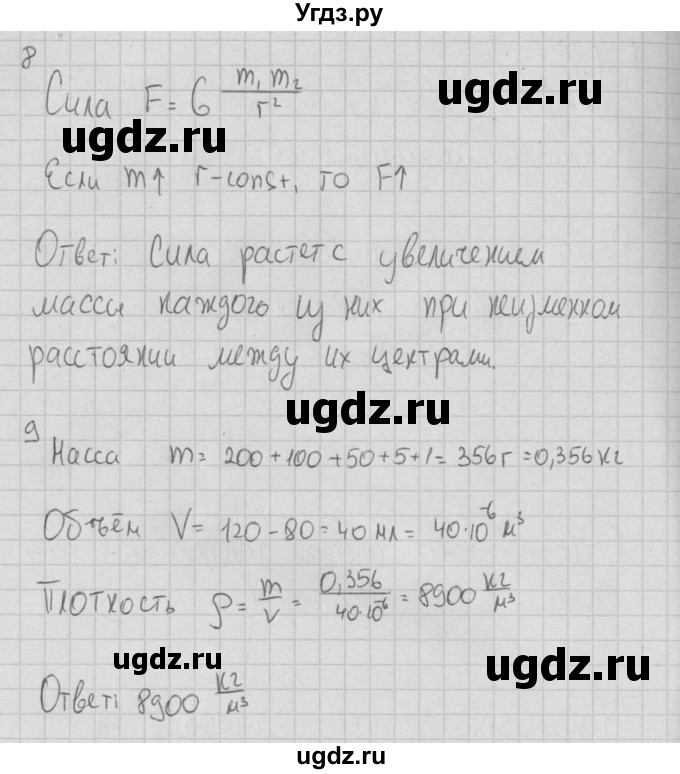 Угдз.ру
8
Сила F = G m₁ m₂ / r²
ugdz.ru
ugdz.ru
Если m↑ r-const, то F↑
Ответ: Сила растет с увеличением
массы каждого из них при неизменном
расстоянии между их центрами.
ugdz.ru
9
Масса m = 200 + 100 + 50 + 5 + 1 = 356 г = 0,356 кг
Объём V = 120 - 80 = 40 мл = 40·10⁻⁶ м³
Плотность ρ = m/V = 0,356 / 40·10⁻⁶ = 8900 кг/м³
ugdz.ru
ugdz.ru
Ответ: 8900 кг/м³
ugdz.ru